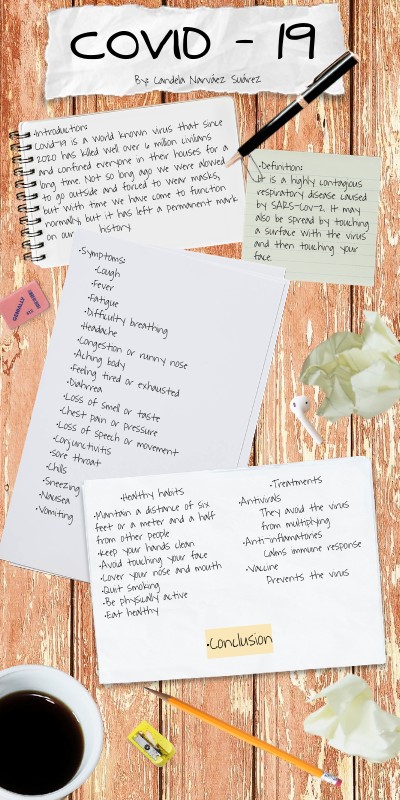 COVID - 19
By: Candela Narváez Suárez
•Introduction:
Covid-19 is a world known virus that since
2020 has killed well over 6 million civilians
and confined everyone in their houses for a
long time. Not so long ago we were allowed
to go outside and forced to wear masks,
but with time we have come to function
normally, but it has left a permanent mark
on our history
•Definition:
It is a highly contagious
respiratory disease caused
by SARS-CoV-2. It may
also be spread by touching
a surface with the virus
and then touching your
face.
•Symptoms:
•Cough
•Fever
•Fatigue
•Difficulty breathing
•Headache
•Congestion or runny nose
•Aching body
•Feeling tired or exhausted
•Diahrrea
•Loss of smell or taste
•Chest pain or pressure
•Loss of speech or movement
•Conjunctivitis
•Sore throat
•Chills
•Sneezing
•Nausea
•Vomiting
•Healthy habits
•Mantain a distance of six
feet or a meter and a half
from other people
•Keep your hands clean
•Avoid touching your face
•Cover your nose and mouth
•Quit smoking
•Be physically active
•Eat healthy
•Treatments
•Antivirals
They avoid the virus
from multiplying
•Anti-inflamatories
Calms immune response
•Vaccine
Prevents the virus
•Conclusion